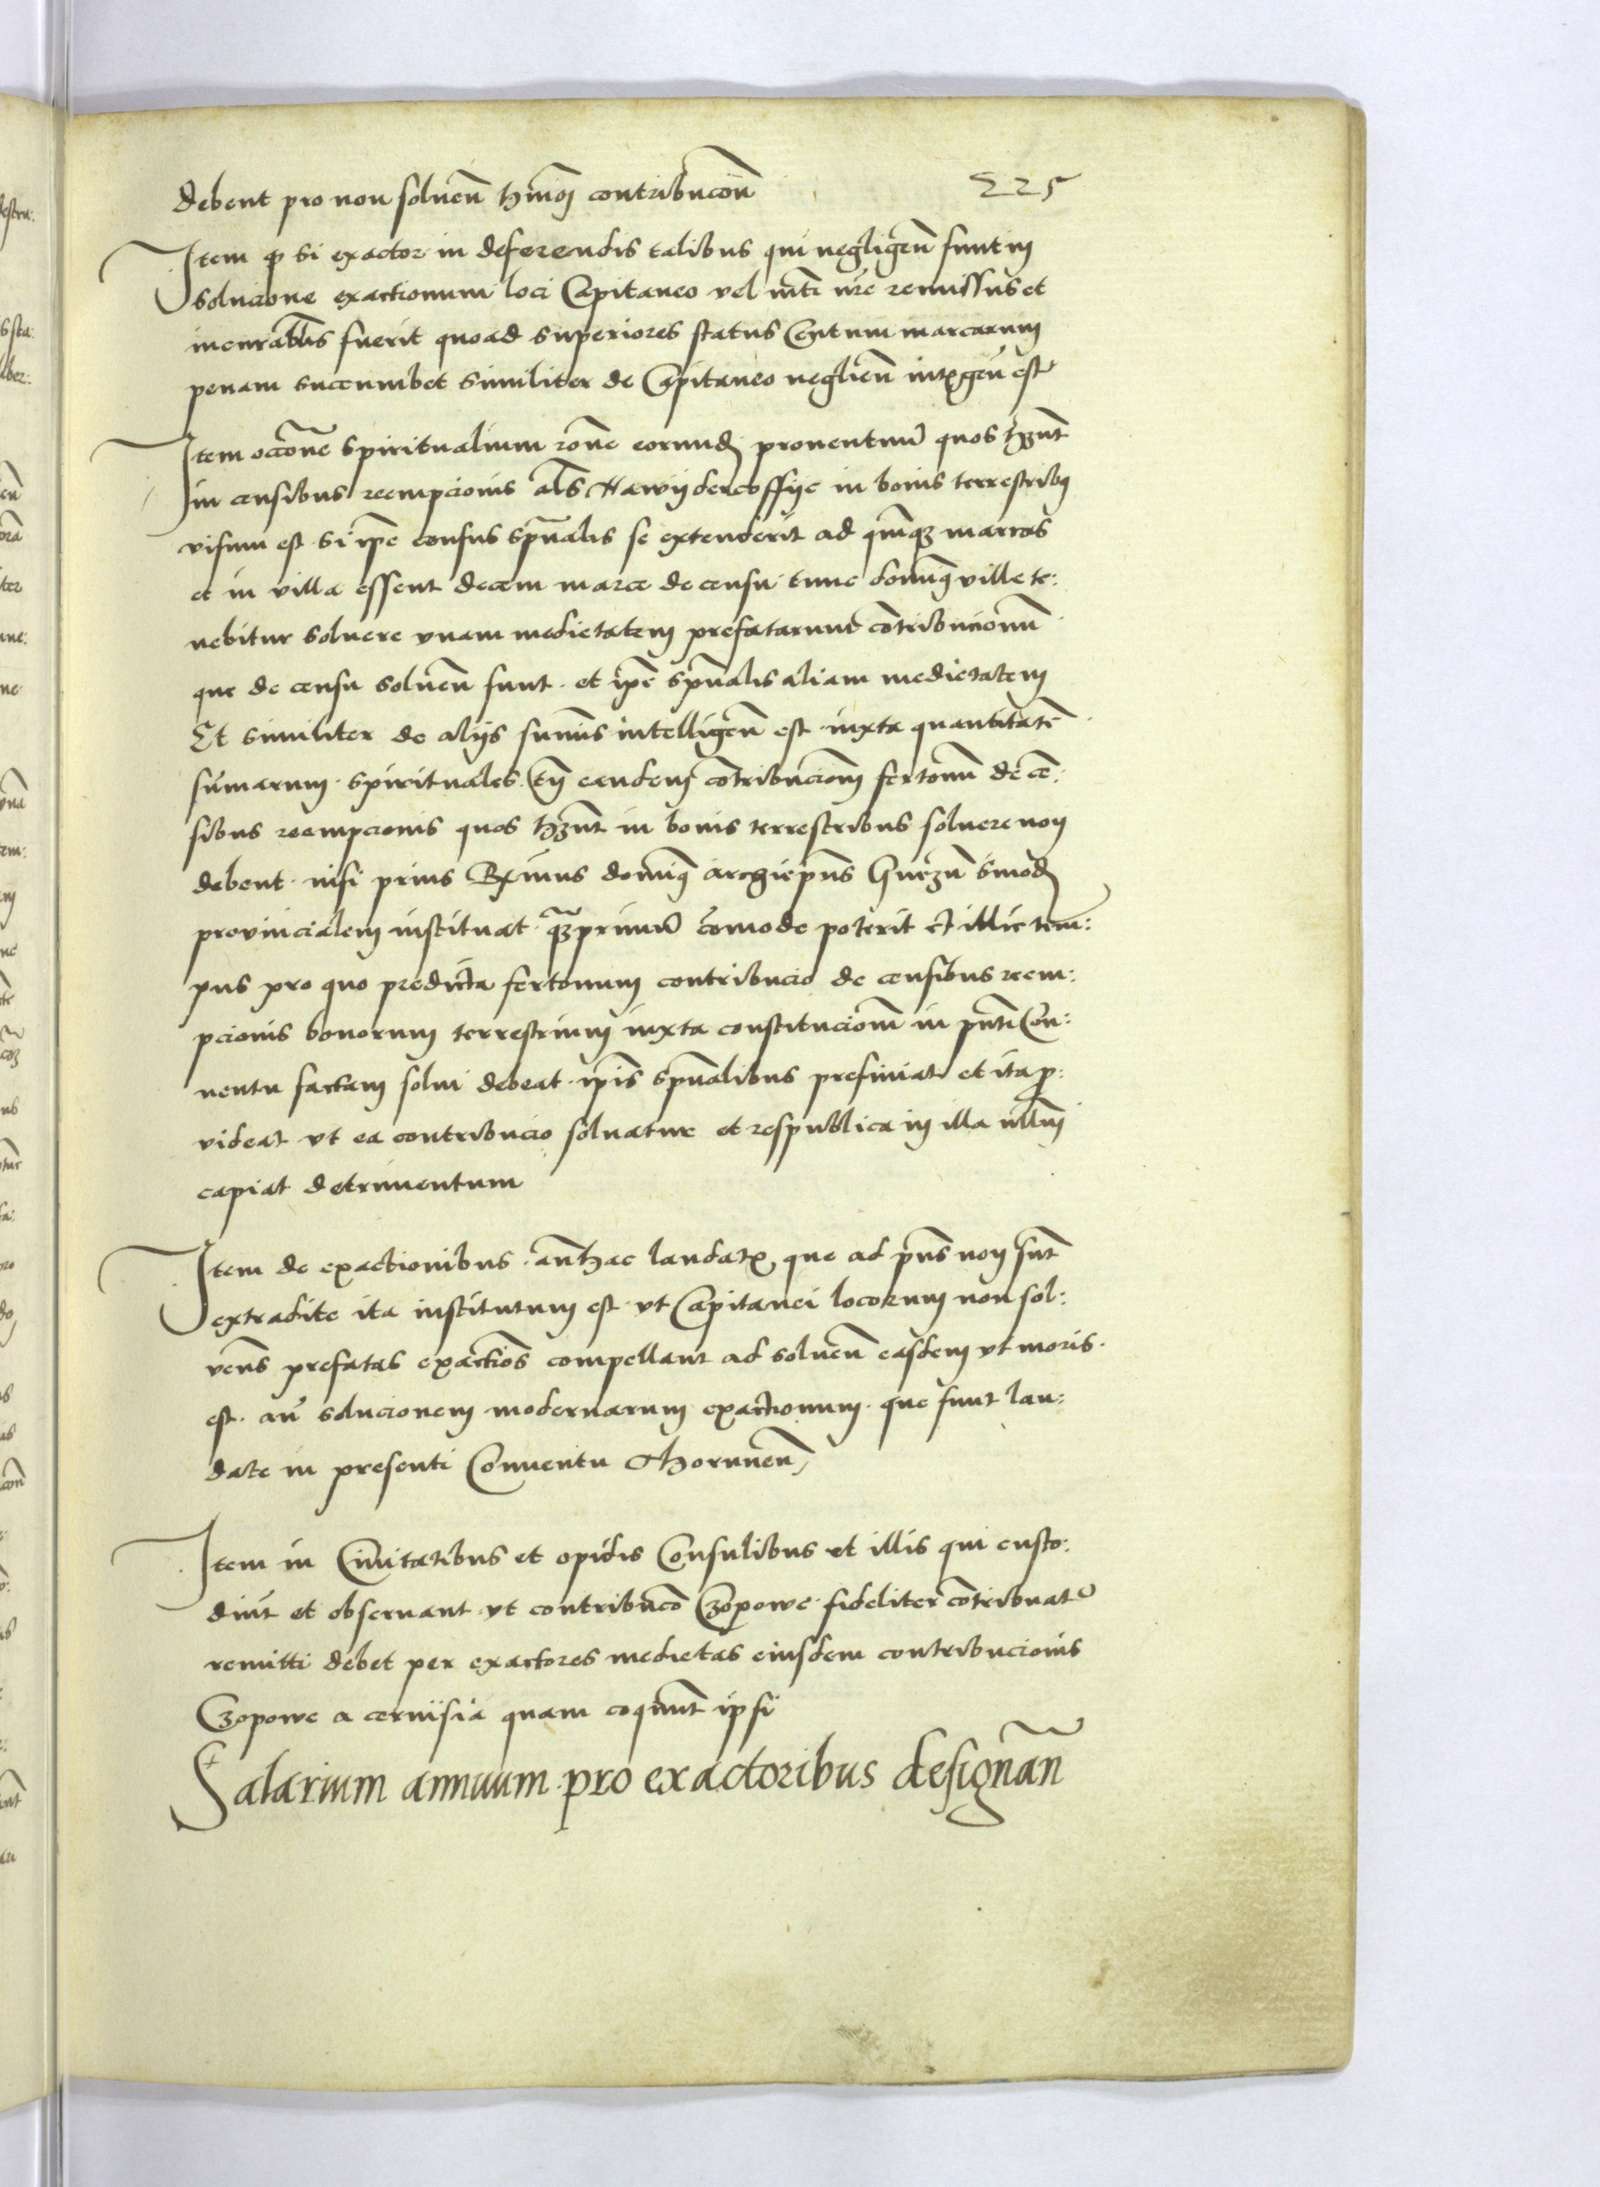 225
debent pro non soluen̄ hm̄oi contribucōn
Item ꝙ si exactor in deferendis talibus qui negligen̄ sunt in
solucione exactionum loci Capitaneo vel mti nr̄e remissus et
incurabilis fuerit quoad superiores status Centum marcarum
penam succumbet similiter de Capitaneo neglien̄ est
Item occōne spiritualium rōne eorund prouentuum quos hn̄t
in censibus reempcionis al̄s Nawyderkoffye in bonis terrestribꝰ
visum est si ip̄e census spūalis se extenderit ad quinqꝫ marcas
et in villa essent decem marce de censu tunc dominꝰ ville te:
nebitur soluere vnam medietatem prefatarum cōntribucionum
que de censu soluen̄ sunt et ip̄e spūalis aliam medietatem
Et similiter de alijs summis intelligen̄ est iuxta quantitatē
sumarum spirituales tn̄ eandem cōntribucionem fertonum de cē:
sibus reempcionis quos hn̄t in bonis terrestribus soluere non
debent nisi prius Rx̄imus dominꝰ arcgiep̄us Gnezn̄ sinod
prouincialem instituat ꝙprimum cōmode poterit et illic tem:
pus pro quo predicta fertonum contribucio de censibus reem:
pcionis bonorum terrestrium iuxta constitucionem in pn̄ti Con:
uentu factam solui debeat ip̄is spūalibus prefiniat et ita ꝓ:
videat vt ea contribucio soluatur et respublica in illa nullum
capiat detrimentum
Item de exactionibus an̄hac laudatꝭ que ad pn̄s non sunt
extradite ita institutum est vt Capitanei locorum non sol:
uen̄s prefatas exactiōs compellant ad soluen̄ easdem vt moris
est an̄ solucionem modernarum exactionum que sunt lau:
date in presenti Conuentu Thorunen̄
Item in Ciuitatibus et opidis Consulibus et illis qui custo:
diūt et obseruant vt contribucō Czopowe fideliter cōntribuatur
remitti debet per exactores medietas eiusdem contribucionis
Czopowe a ceruisia quam coquūnt ipsi
Salarium annuum pro exactoribus designan̄